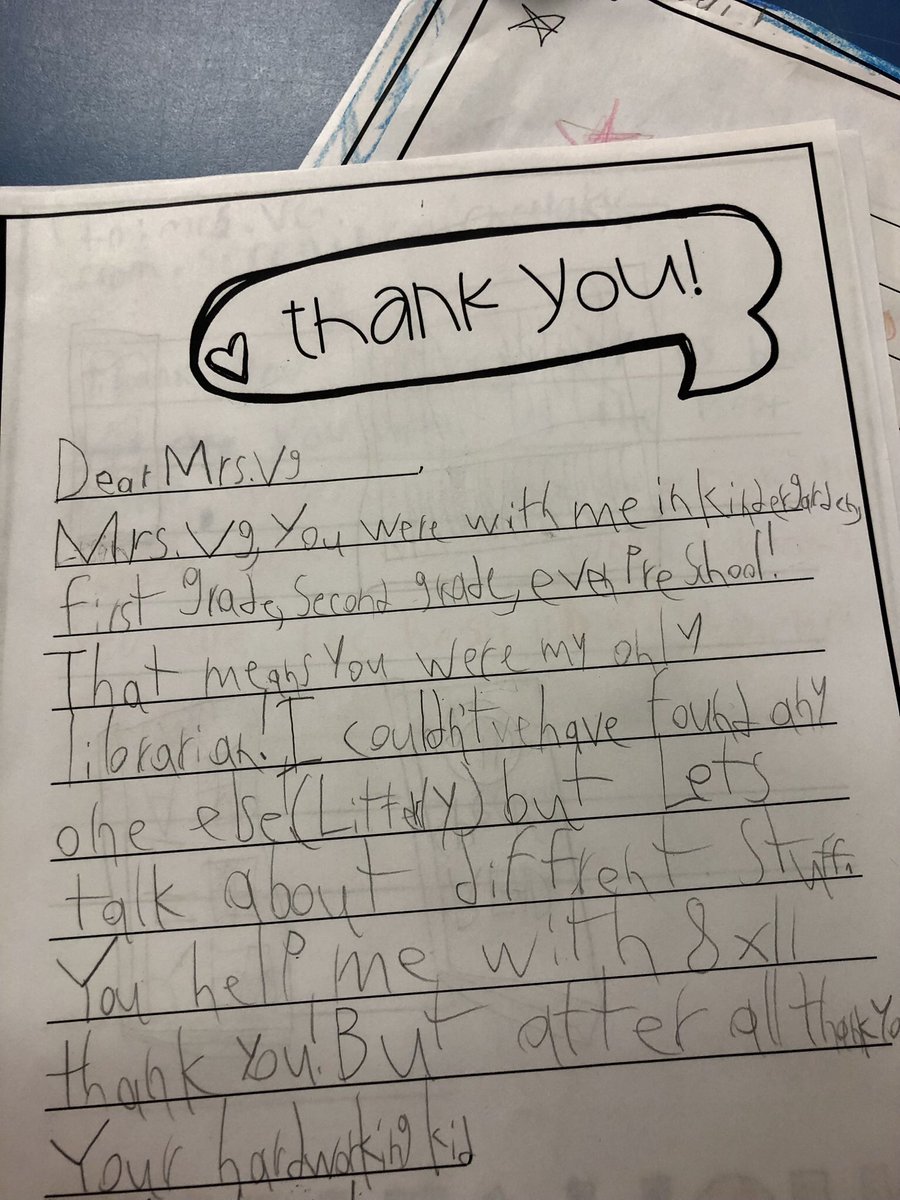 thank you!
Dear Mrs.Vg,
Mrs.Vg, You were with me in kindergarden,
first grade, second grade, even PreSchool!
That means You were my only
librarian! I couldn'tve have found any
one else! (Litterly) but Lets
talk about diffrent stuff.
You help me with 8x11
thank You! But after all thank Yo
Your hardworking kid